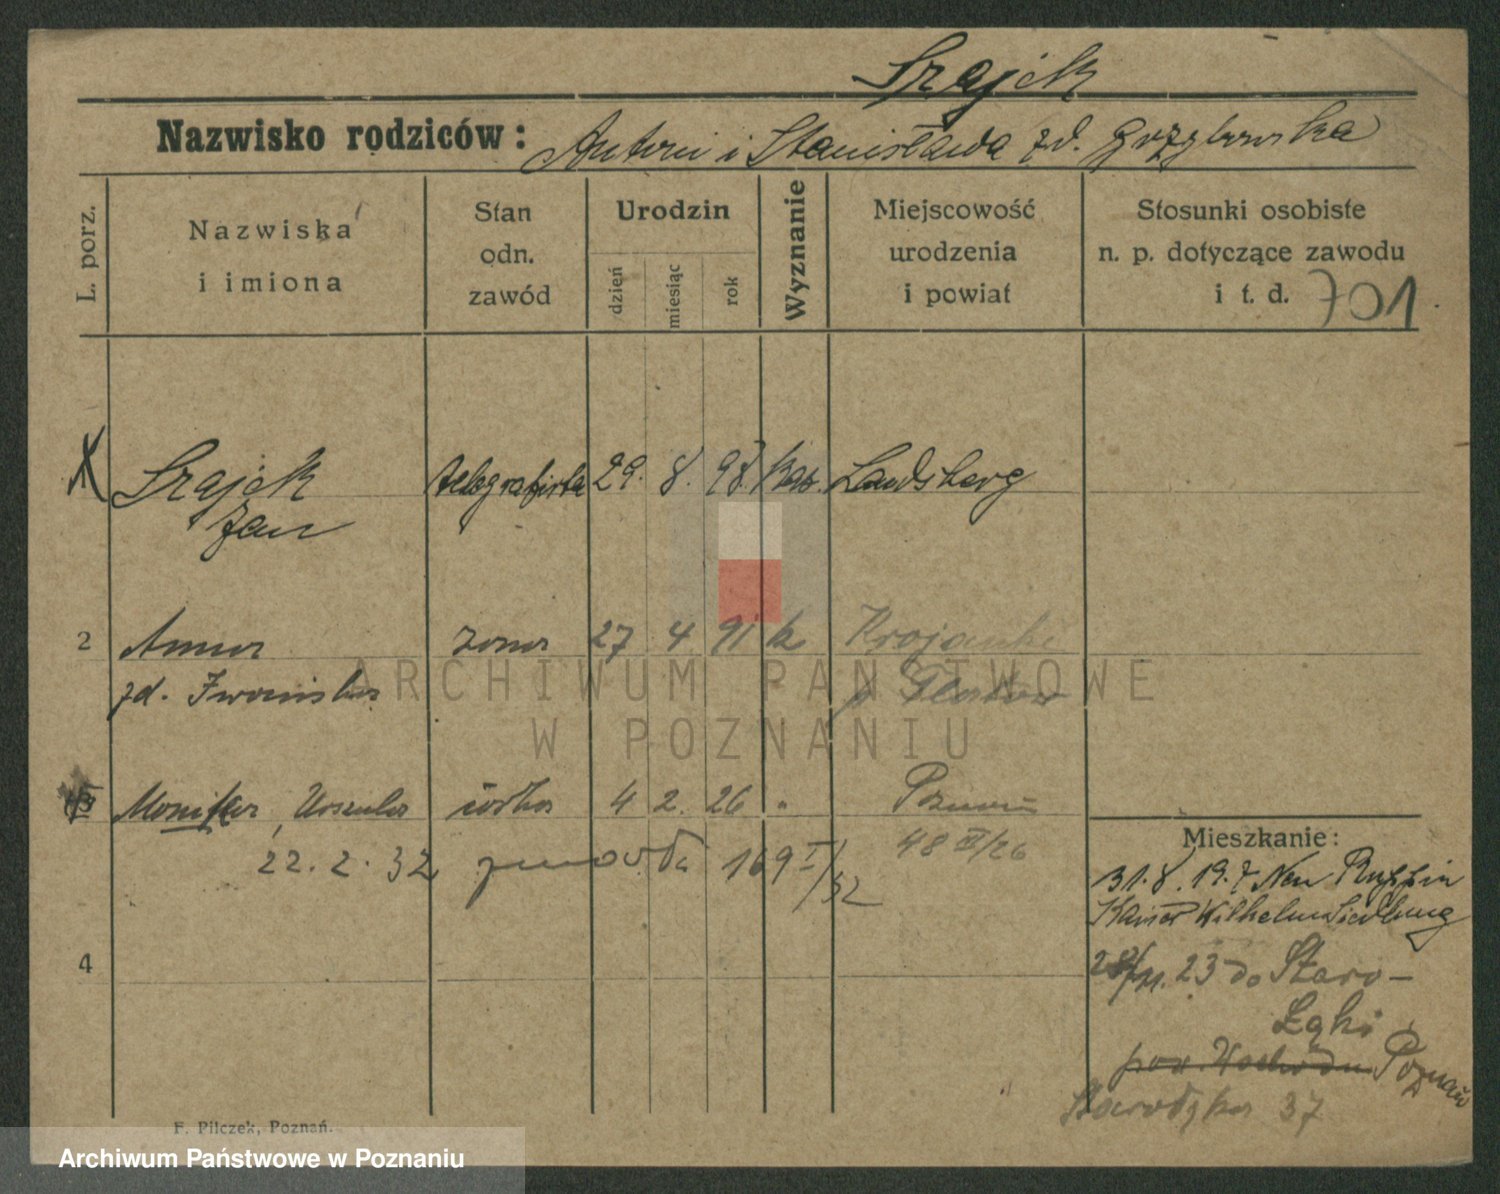 Szajek
Nazwisko rodziców: Antoni i Stanisława zd. Grzybowska
L. porz.
Nazwiska
i imiona
Stan
odn.
zawód
Urodzin
dzień
miesiąc
rok
Wyznanie
Miejscowość
urodzenia
i powiat
Stosunki osobiste
n. p. dotyczące zawodu
i t. d.
701
Szajek telegrafista 29. 8. 98. kat. Landsberg
Jan
2 Anna żona 27 4 91 k Krojanka
zd. Iwonska p Flatow
3 Monika, Urszula córka 4 2. 26 " Poznań
22. 2. 32 zmarła 169 I/32 48 III/26
4
Mieszkanie:
31. 8. 19. z Neu Ruppin
Kaiser Wilhelm Siedlung
23 do Staro-
Łęki
pow. Poznań
Starołęka 37
F. Pilczek, Poznań.
ARCHIWUM PAŃSTWOWE
W POZNANIU
Archiwum Państwowe w Poznaniu